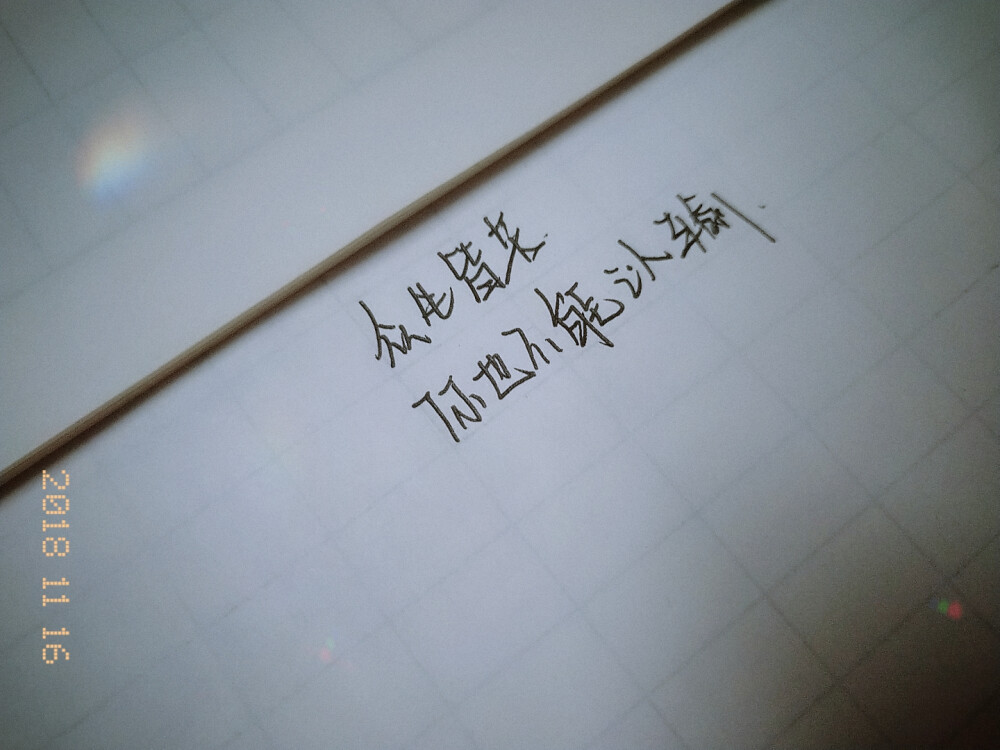 众生皆苦
你也不能认输
2018 11 16